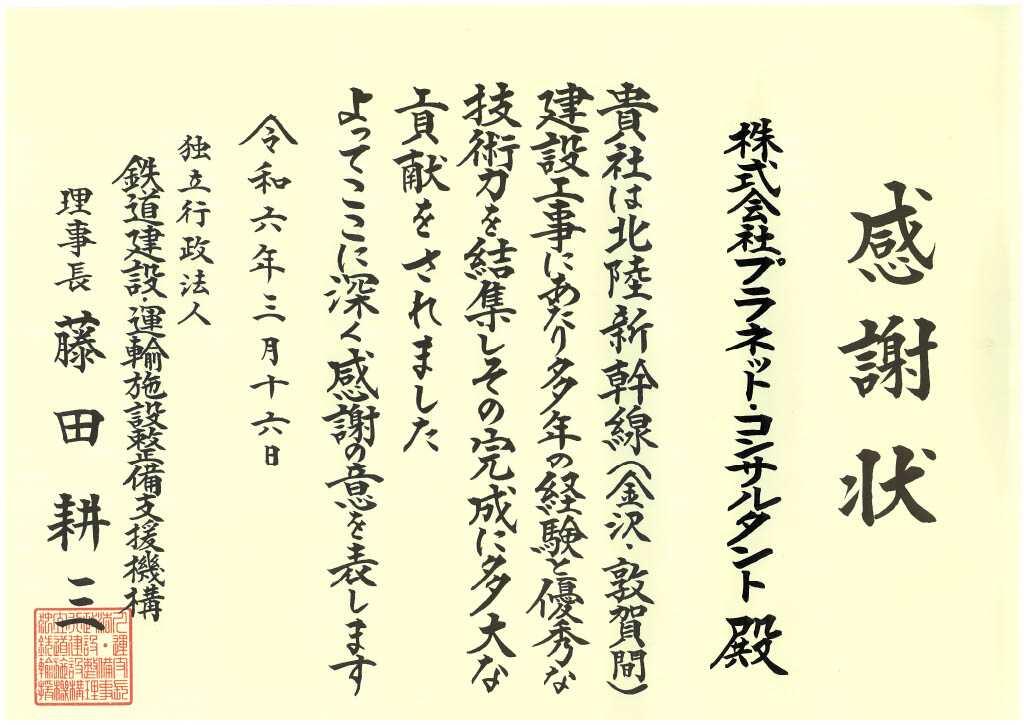 感謝状
株式会社プラネット・コンサルタント 殿
貴社は北陸新幹線(金沢・敦賀間)
建設工事にあたり多年の経験と優秀な
技術力を結集しその完成に多大な
貢献をされました
よってここに深く感謝の意を表します
令和六年三月十六日
独立行政法人
鉄道建設・運輸施設整備支援機構
理事長 藤田耕三